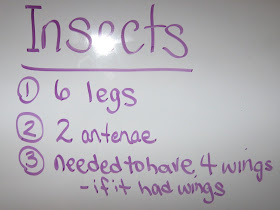 Insects
① 6 legs
② 2 antenae
③ needed to have 4 wings
- if it had wings